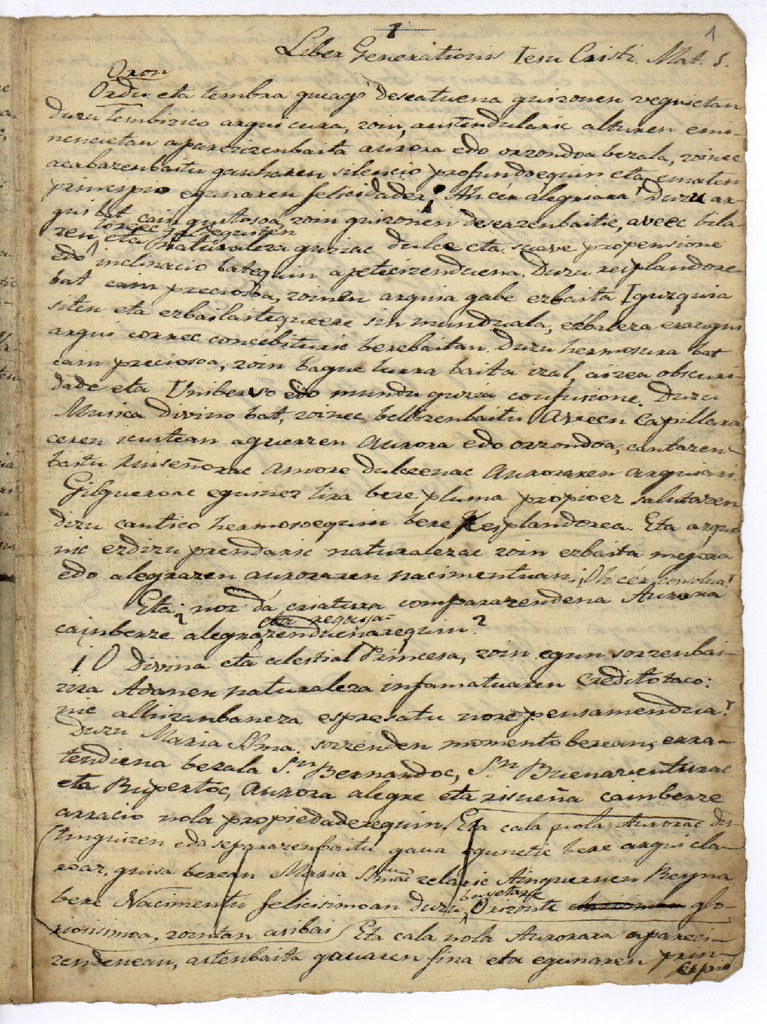 1
Liber Generationis Iesu Cristi. Mat. 1.
Oren
Ordu eta tembra guiago deseatuena guizonen veguietan
duzu tembizco arguicura, zoin, austindularic alturen emi-
nencietan aparecizenbaita aurora edo orzondoa bezala, zoinec
acabazenbaitu gauharen silencio profundoequin eta ematen
principio egunaren felicidadea; Ah cér alegriara! Duzu ar-
gui bat cain gustosa, zoin guizonen deseazenbaitie, aveec bila-
zen eta naturaleza guziac dulce eta suave propensione
edo inclinacio batequin apetecizenduena. Duzu resplandore
bat cain preciosoa, zoinen arguia gabe ezbaita Iguzquia
siten eta ezbailastequeere sin munduala, ezbaleza erazagun
argui correc concebituric berebaitan. Duzu hermosura bat
cain preciosoa, zoin bague lurra baita izal, airea obscuri-
dade eta Universo edo mundu guzia confusione. Duzu
Musica divino bat, zoinec bellizenbaitu Aveen Capillara
ceren icustean aguerzen Aurora edo orzondoa, cantazen-
baitu Ruiseñorac amore dulceenac Auroraren arguiari
Gilgueroac eguinez lira bere pluma propioez salutazen
dizu cantico hermosoequin bere resplandorea. Eta azque-
nic ezdizu prendaric naturalezac zoin ezbaita mejora
edo alegrazen auroraren nacimentuan; Oh cér consolua!
Eta nor da criatura comparazendena Aurora
eta regocija-
cainberze alegrazenduenarequin?
¡O Divina eta celestial Princesa, zoin egun sorzenbai-
zira Adanen naturaleza infamatuaren Creditotaco:
nic allizanbaneza espresatu nore pensamendua!
Duzu Maria SSma. sorzenden momento berean, erra-
tendiena bezala Sn. Bernardoc, Sn. Buenaventurac
eta Rupertoc, Aurora alegre eta risueña cainberze
arracio nola propiedadezequin. Eta cala nola Aurorac dis-
tinguizen edo separazenbaitu gaua egunetic bere argui cla-
roaz, guisa berean Maria SSma. zelaric Ainguerуen Reyna
bere Nacimentu felicisimoan duzu Orizonte glo-
riosisimoa, zointan Eta cala nola Aurorara apareci-
zendenean, astenbaita gauaren fina eta egunaren prin-
cipio